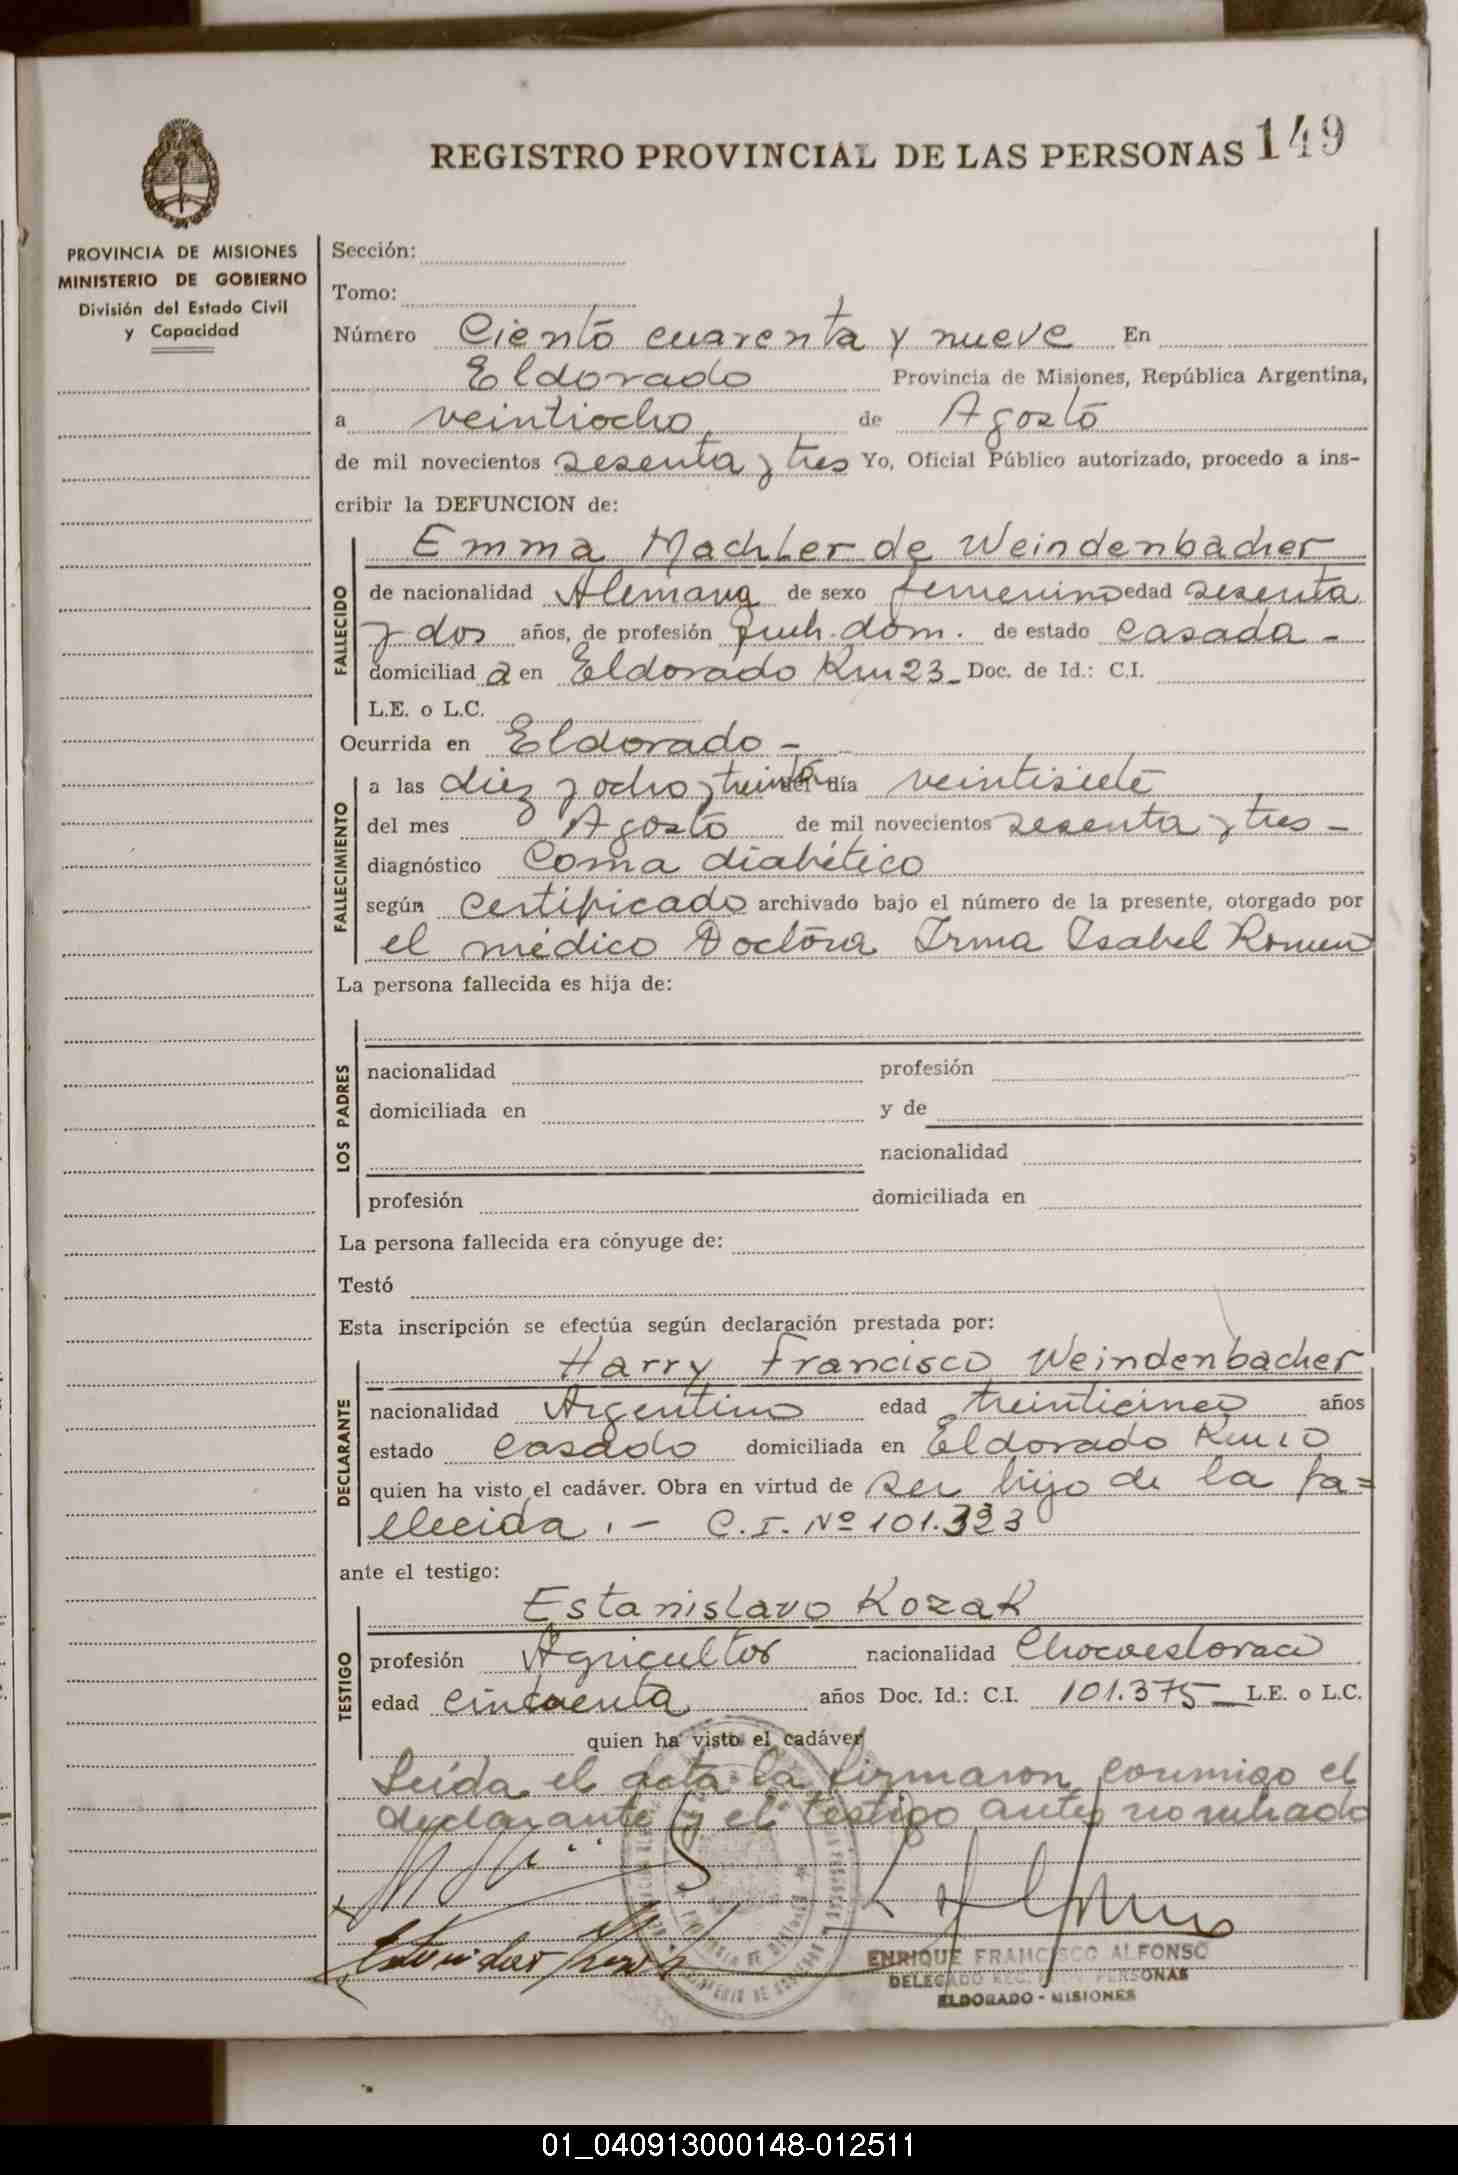 REGISTRO PROVINCIAL DE LAS PERSONAS 149
PROVINCIA DE MISIONES
MINISTERIO DE GOBIERNO
División del Estado Civil
y Capacidad
Sección:
Tomo:
Número Ciento cuarenta y nueve En
Eldorado Provincia de Misiones, República Argentina,
a veintiocho de Agosto
de mil novecientos sesenta y tres Yo, Oficial Público autorizado, procedo a ins-
cribir la DEFUNCION de:
FALLECIDO
Emma Machler de Weindenbacher
de nacionalidad Alemana de sexo femenino edad sesenta
y dos años, de profesión queh. dom. de estado casada -
domiciliad a en Eldorado Km 23 - Doc. de Id.: C.I.
L.E. o L.C.
Ocurrida en Eldorado -
FALLECIMIENTO
a las diez y ocho y treinta del día veintisiete
del mes Agosto de mil novecientos sesenta y tres -
diagnóstico Coma diabético
según certificado archivado bajo el número de la presente, otorgado por
el médico Doctora Irma Isabel
La persona fallecida es hija de:
LOS PADRES
nacionalidad profesión
domiciliada en y de
nacionalidad
profesión domiciliada en
La persona fallecida era cónyuge de:
Testó
Esta inscripción se efectúa según declaración prestada por:
DECLARANTE
Harry Francisco Weindenbacher
nacionalidad Argentino edad treinticinco años
estado casado domiciliada en Eldorado Km 10
quien ha visto el cadáver. Obra en virtud de ser hijo de la fa=
llecida. - C.I. Nº 101.323
ante el testigo:
TESTIGO
Estanislavo Kozak
profesión Agricultor nacionalidad
edad cincuenta años Doc. Id.: C.I. 101.375 - L.E. o L.C.
quien ha visto el cadáver
Leída el acta la firmaron conmigo el
declarante y el testigo antes nombrado
ENRIQUE FRANCISCO ALFONSO
DELEGADO REG. PERSONAS
ELDORADO - MISIONES
01_040913000148-012511